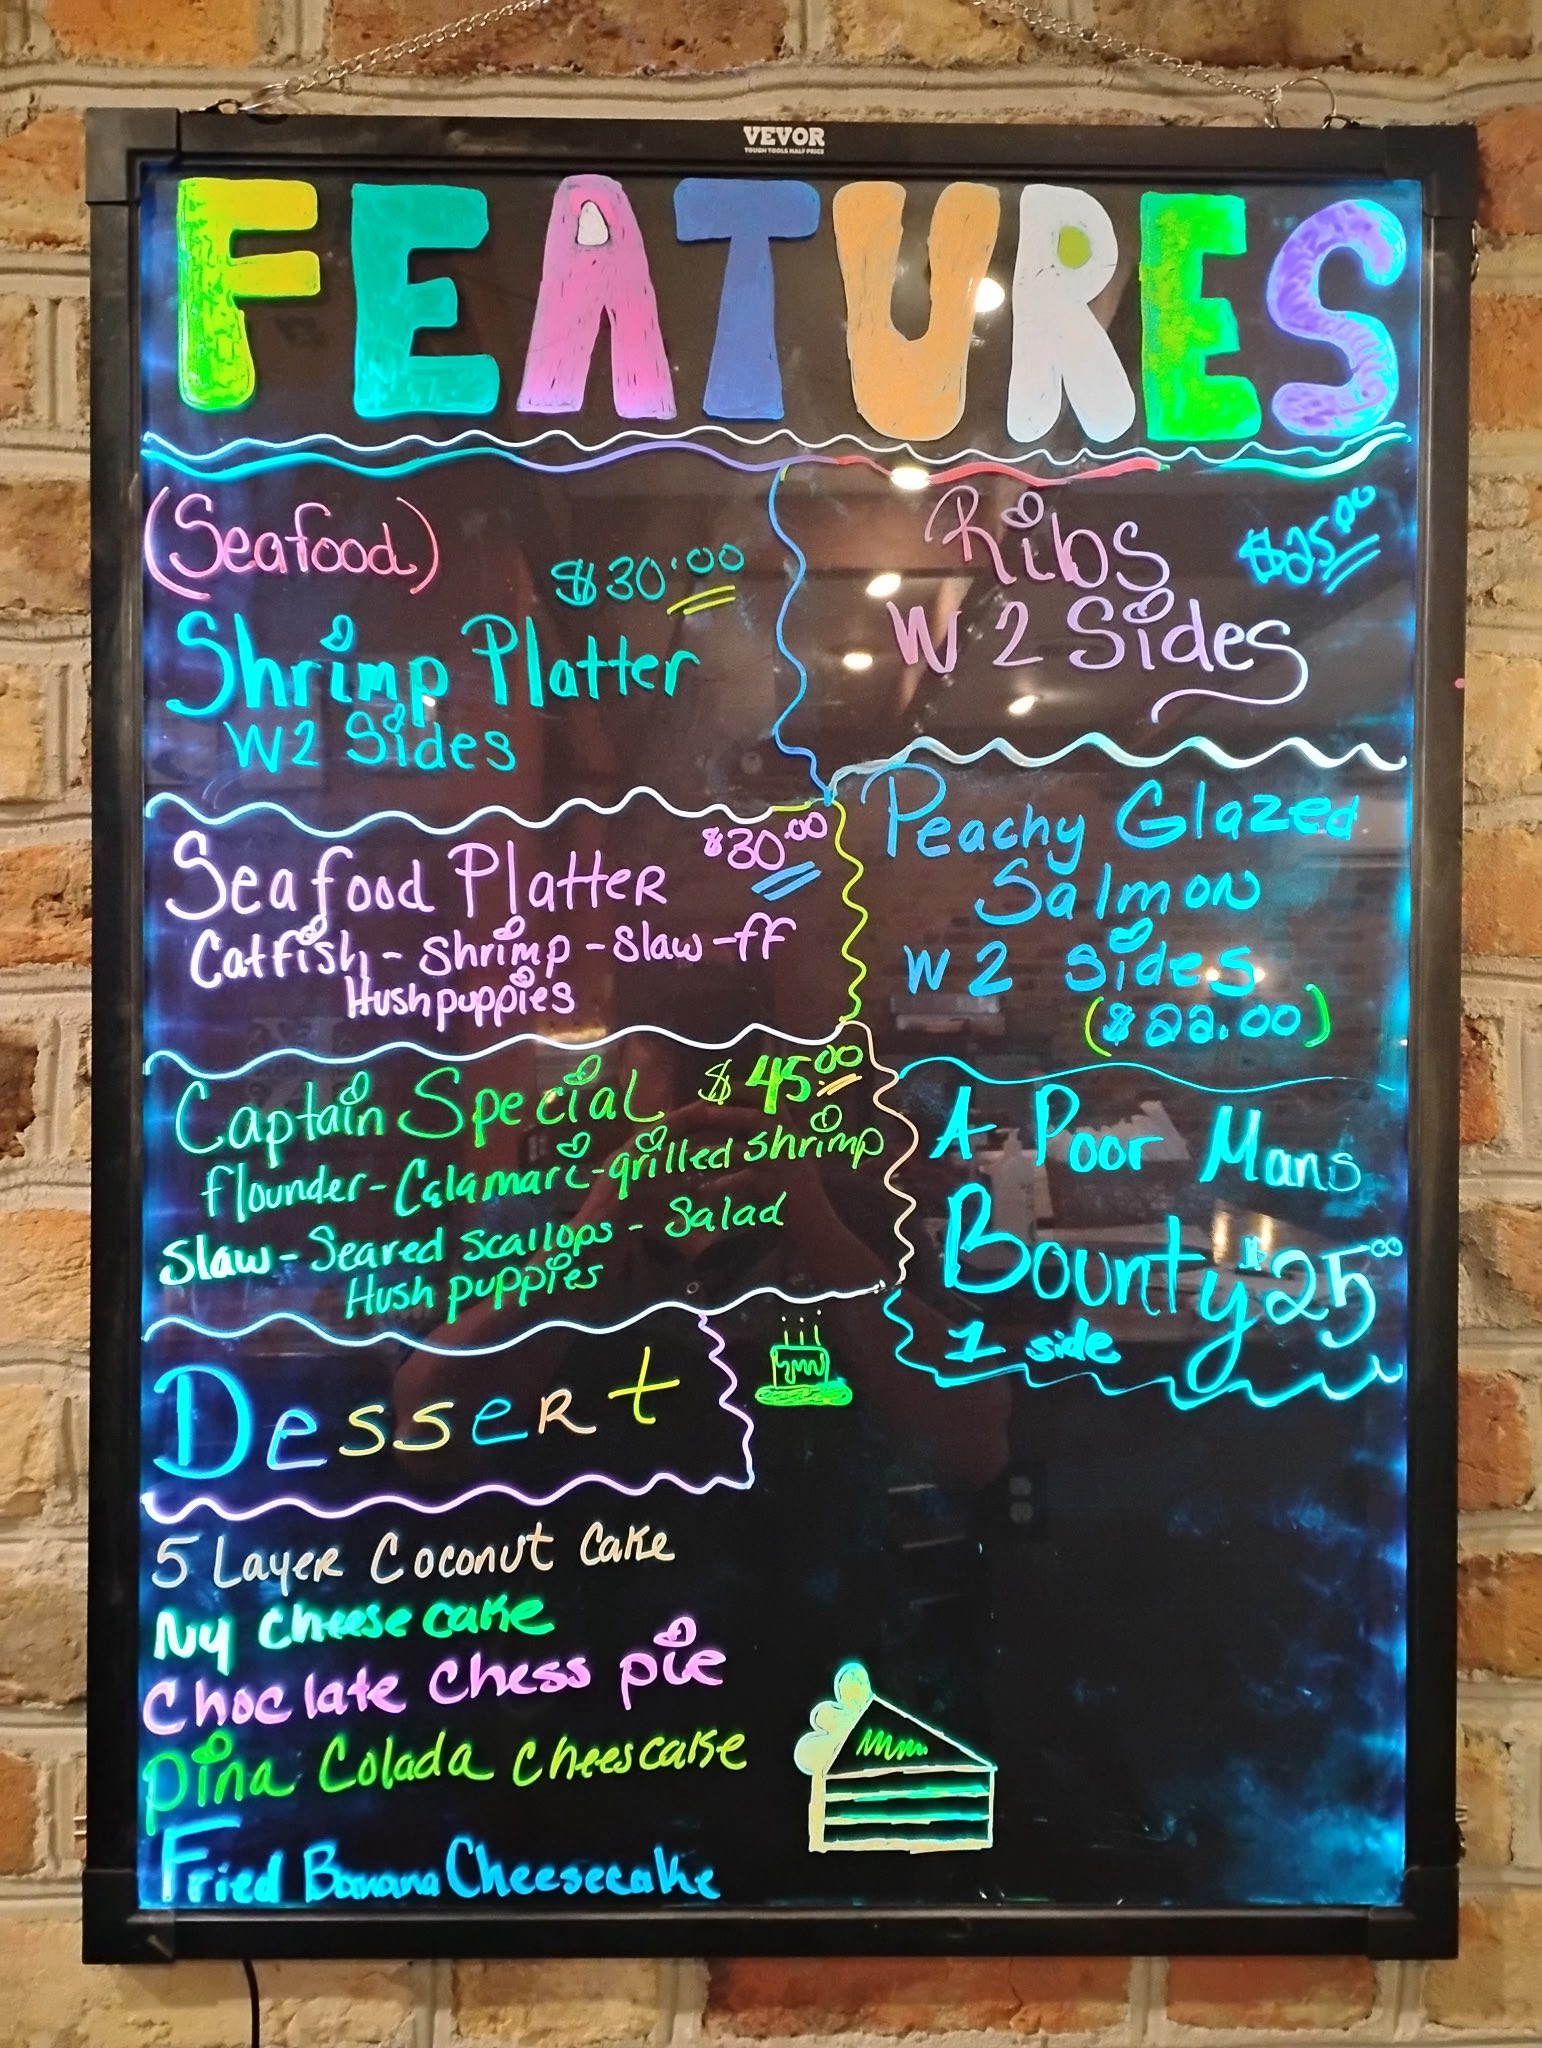 VEVOR
TOUGH TOOLS HALF PRICE
FEATURES
(Seafood)
$30.00
Shrimp Platter
W 2 Sides
Seafood Platter $30.00
Catfish - Shrimp - Slaw - ff
Hushpuppies
Captain Special $45.00
flounder - Calamari - grilled shrimp
Slaw - Seared Scallops - Salad
Hush puppies
Ribs $25.00
W 2 Sides
Peachy Glazed
Salmon
W 2 Sides
($22.00)
A Poor Mans
Bounty $25.00
1 side
Dessert
5 Layer Coconut Cake
Ny Cheese cake
Choclate Chess pie
Pina Colada Cheescake
Fried Banana Cheesecake